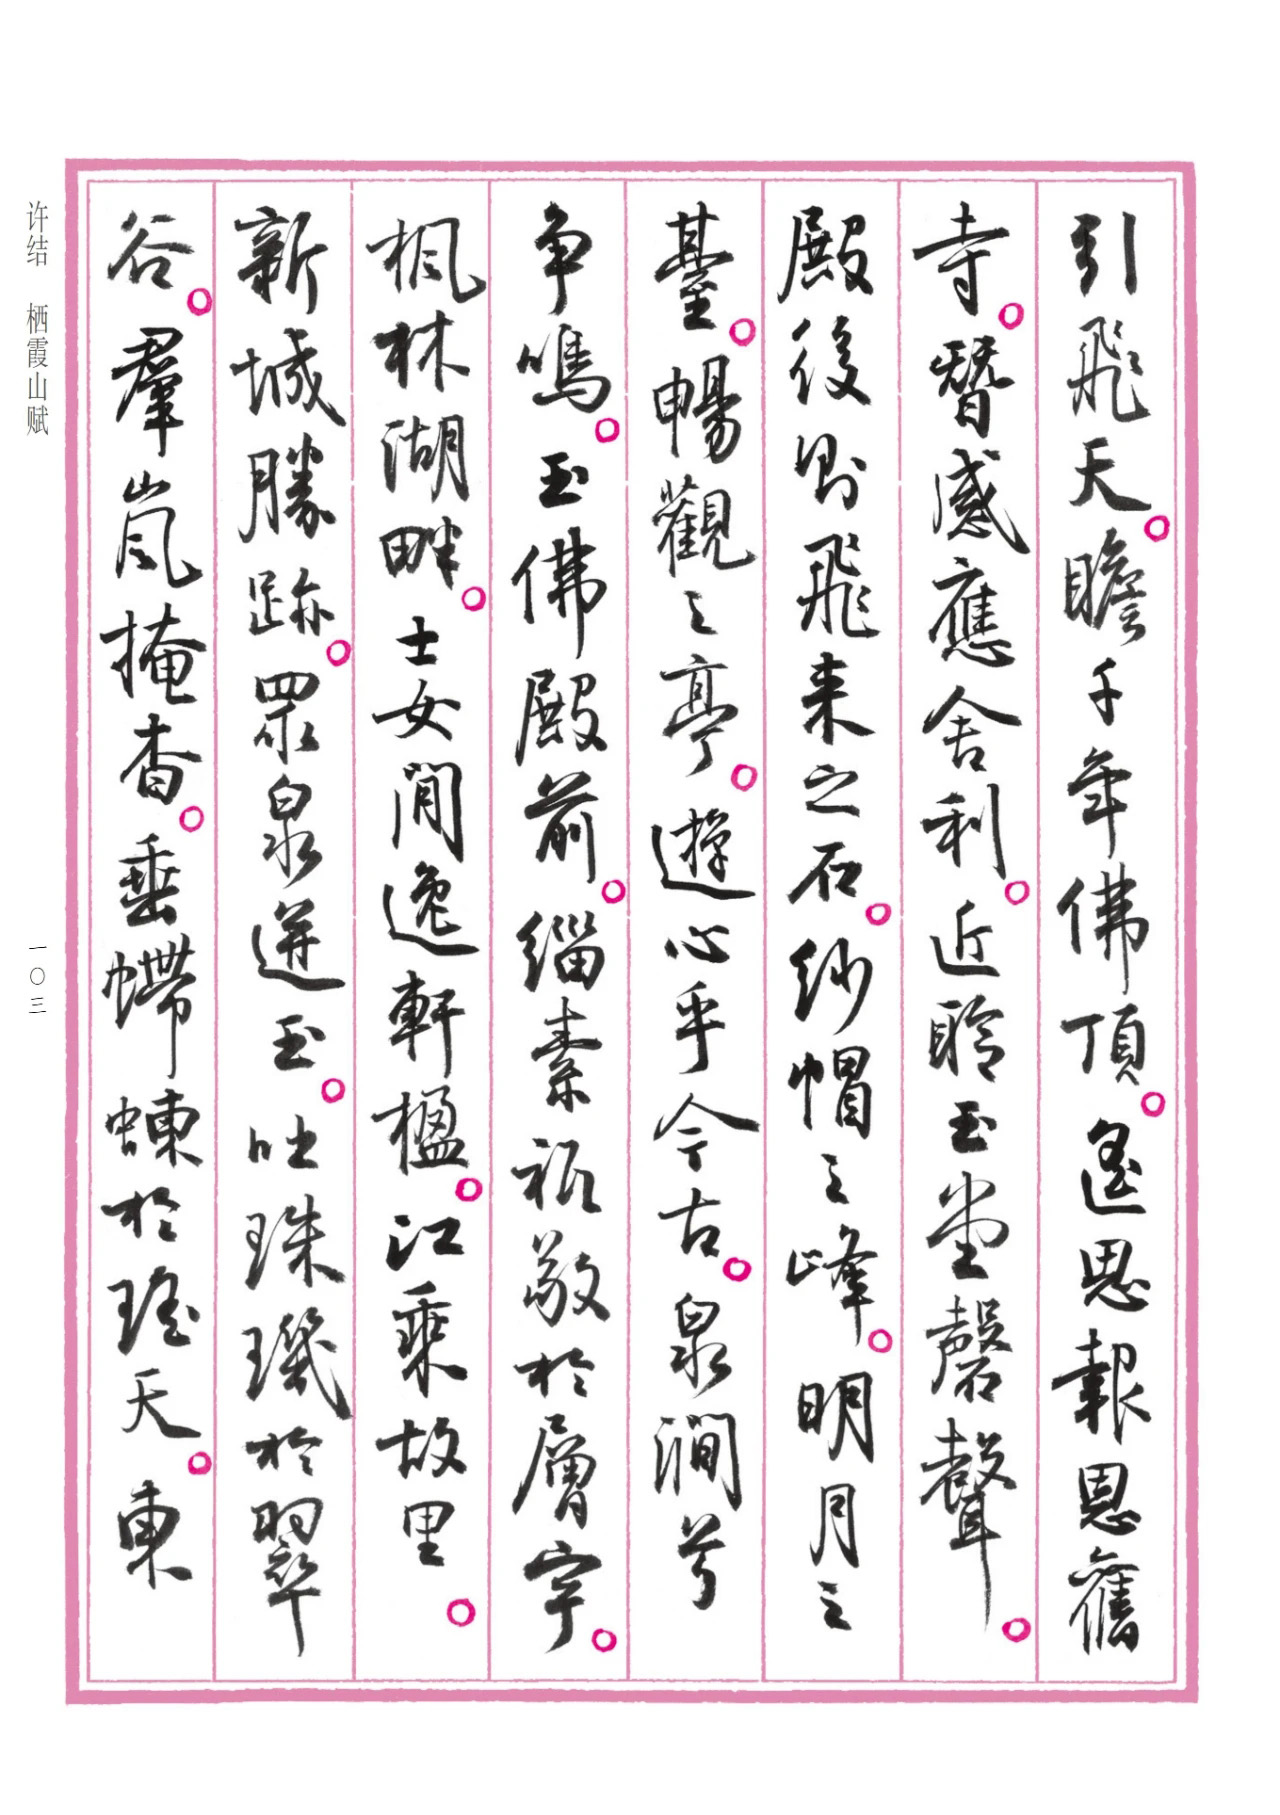 引飛天。瞻千年佛頂。遙思報恩舊
寺。瞥感應舍利。近聆玉堂磬聲。
殿後則飛来之石。紗帽之峰。明月之
臺。暢觀之亭。遊心乎今古。泉澗兮
争鳴。玉佛殿前。緇素祗敬於層宇。
楓林湖畔。士女閒逸軒楹。江乘故里。
新城勝跡。眾泉迸玉。吐珠璣於翠
谷。羣嵐掩杳。垂螮蝀於瑤天。東
许结 栖霞山赋
一〇三